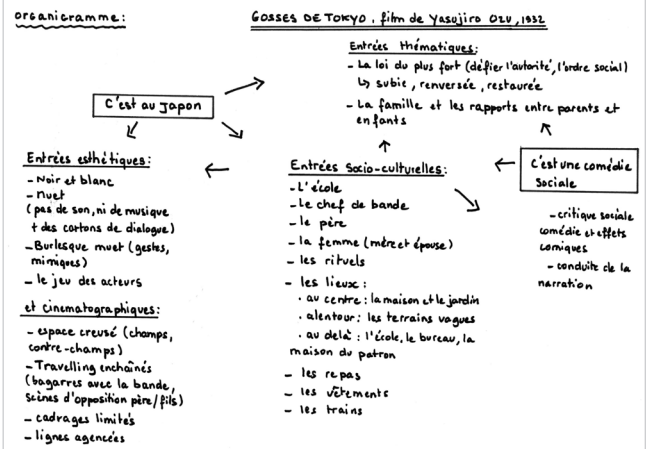 organigramme:
GOSSES DE TOKYO, film de Yasujiro OZU, 1932
Entrées thématiques:
- La loi du plus fort (défier l'autorité, l'ordre social)
↳ subie, renversée, restaurée
- La famille et les rapports entre parents et
enfants
C'est au Japon
Entrées esthétiques:
- Noir et blanc
- muet
(pas de son, ni de musique
+ des cartons de dialogue)
- Burlesque muet (gestes,
mimiques)
- le jeu des acteurs
et cinematographiques:
- espace creusé (champs,
contre-champs)
- Travelling enchaînés
(bagarres avec la bande,
scènes d'opposition père/fils)
- cadrages limités
- lignes agencées
Entrées socio-culturelles:
- L'école
- Le chef de bande
- le père
- la femme (mère et épouse)
- les rituels
- les lieux:
. au centre: la maison et le jardin
. alentour: les terrains vagues
. au delà: l'école, le bureau, la
maison du patron
- les repas
- les vêtements
- les trains
C'est une comédie
sociale
- critique sociale
comédie et effets
comiques
- conduite de la
narration